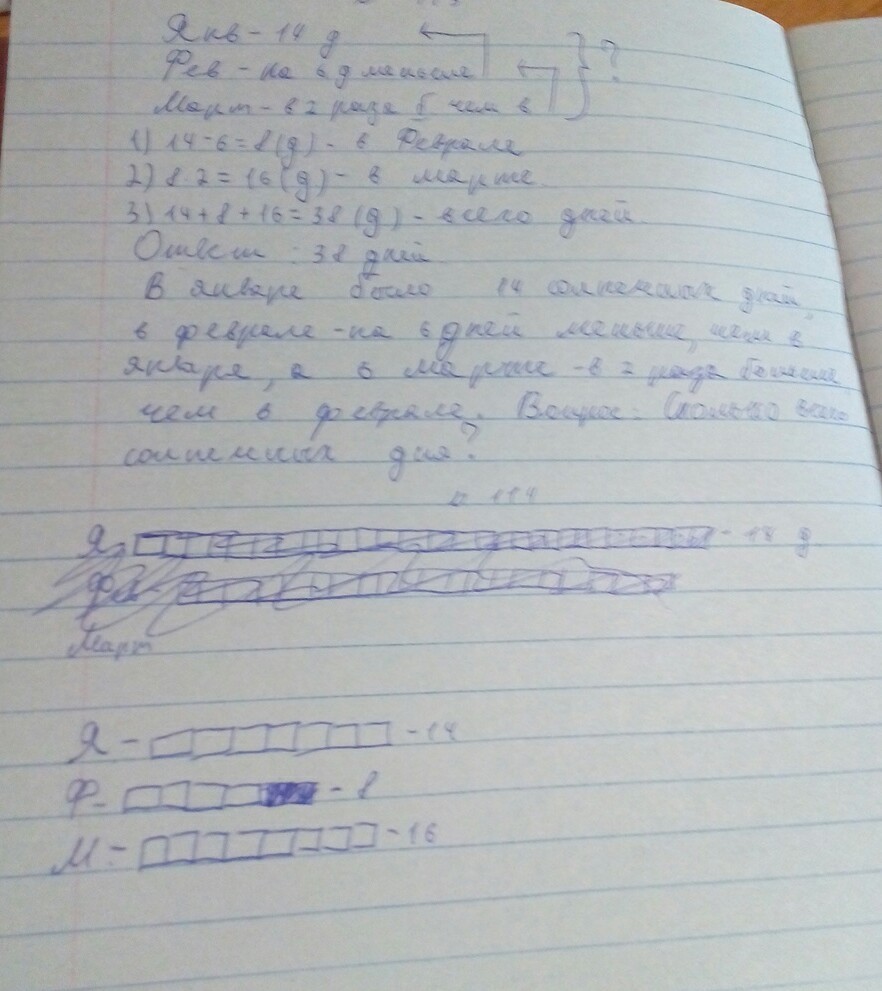 Янв - 14 д ?
Фев - на 6 д меньше
Март - в 2 раза б чем в
1) 14-6=8(д) - в Феврале
2) 8·2=16(д) - в марте.
3) 14+8+16=38(д) - всего дней
Ответ: 38 дней
В январе было 14 солнечных дней,
в феврале - на 6 дней меньше, чем в
январе, а в марте - в 2 раза больше
чем в феврале. Вопрос: Сколько всего
солнечных дня?
Я - д
Март
Я - - 14
Ф - - 8
М - - 16